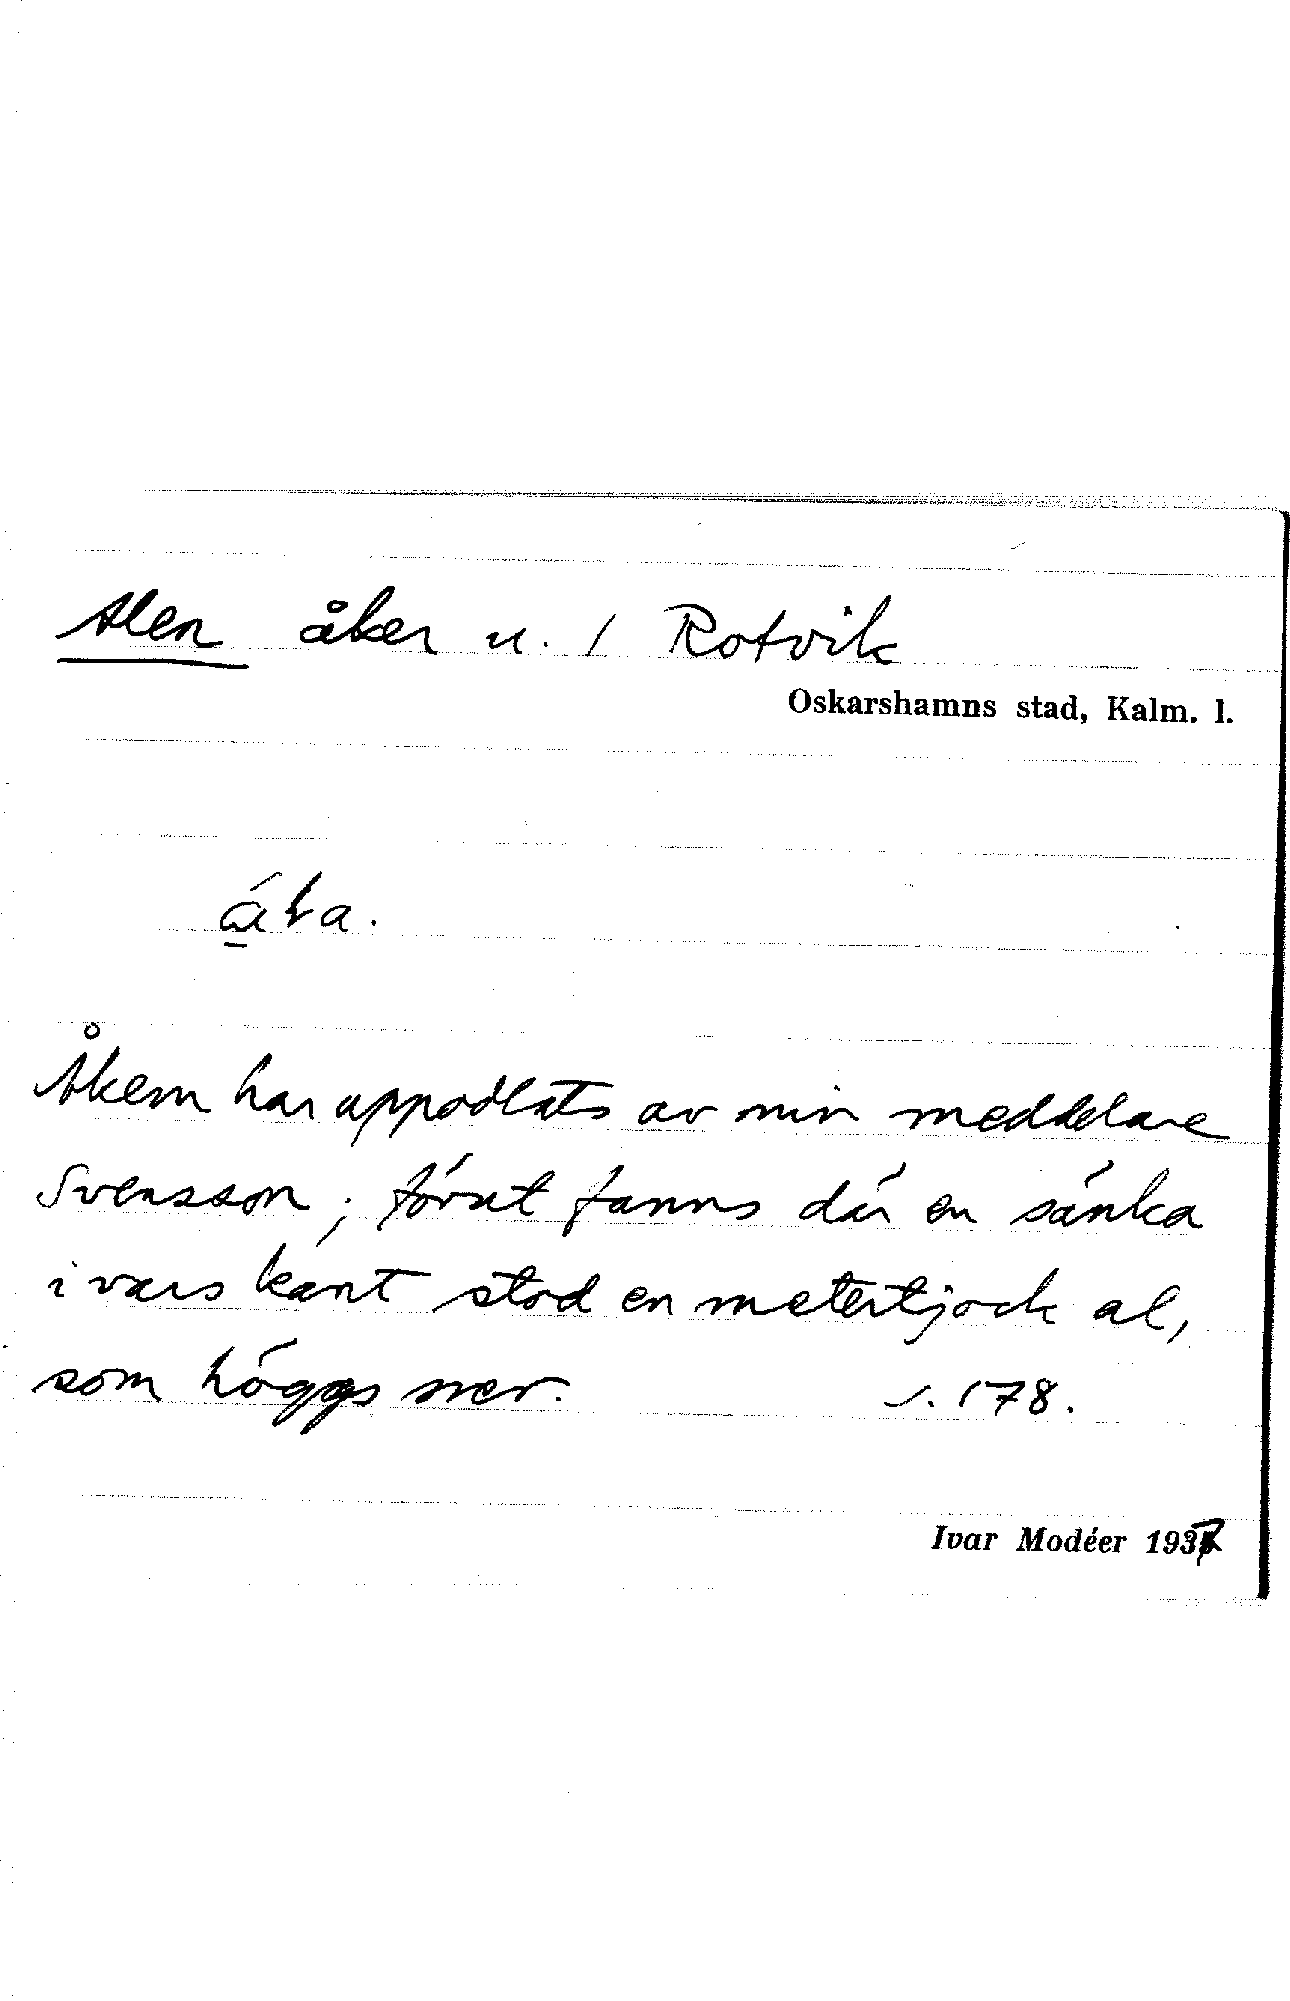 Alen åker u. / Rotvik
Oskarshamns stad, Kalm. l.
Åkern har uppodlats av min meddelare
Svensson; förut fanns där en sänka
i vars kant stod en metertjock al,
som höggs ner. s. 178.
Ivar Modéer 1937